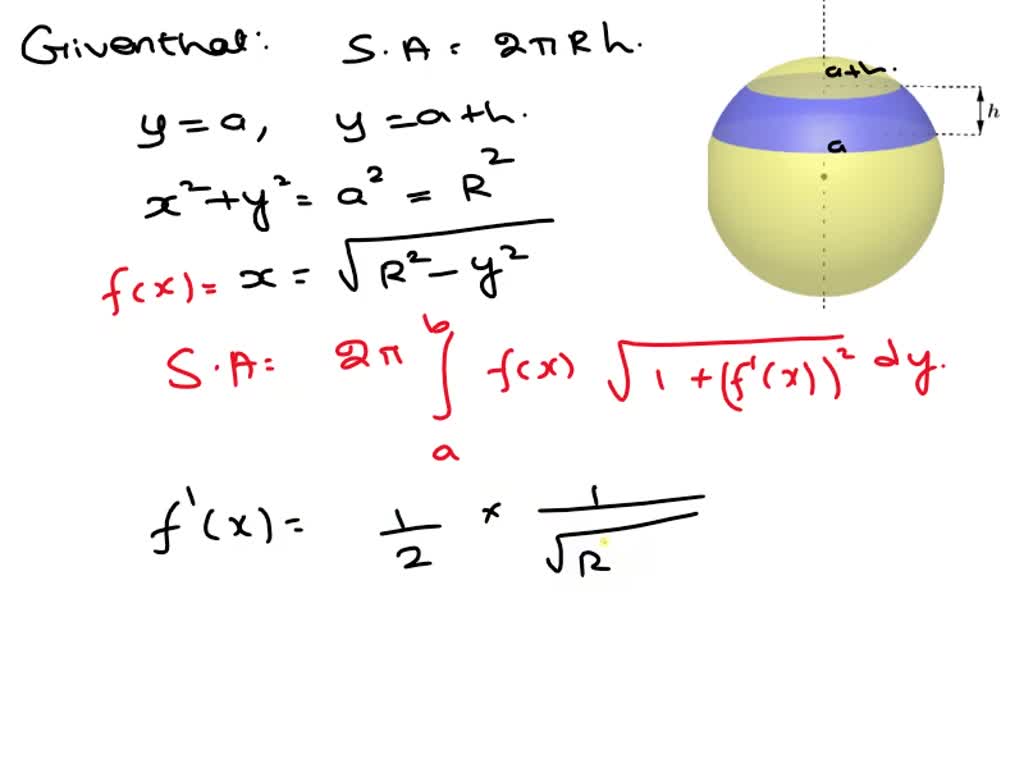 Giventhat: S.A = 2πRh.
y = a, y = a+h.
x² + y² = a² = R²
f(x) = x = √(R² − y²)
S.A = 2π ∫ₐᵇ f(x) √(1 + (f'(x))²) dy.
f'(x) = 1/2 × 1/√R
a+h.
h
a